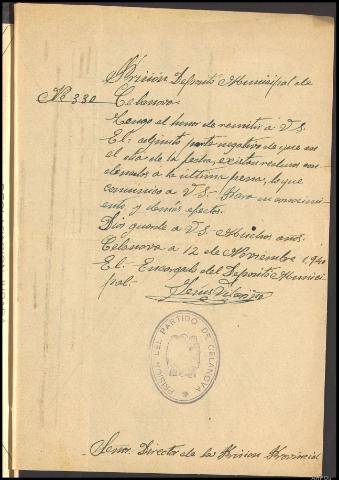 Prisión Deposito Municipal de
Nº 330 Celanova.
Tengo el honor de remitir á V.S.
El adjunto parte negativo de que en
el dia de la fecha, existen reclusos con-
denados a la última pena, lo que
comunico a V.S. Para su conocimi-
ento y demás efectos.
Dios guarde a V.S. Muchos años.
Celanova a 12 de Noviembre 1.940
El Encargado del Deposito Munici-
pal.-
Jesús
PRISION DEL PARTIDO DE CELANOVA
Señor Director de la Prision Provincial